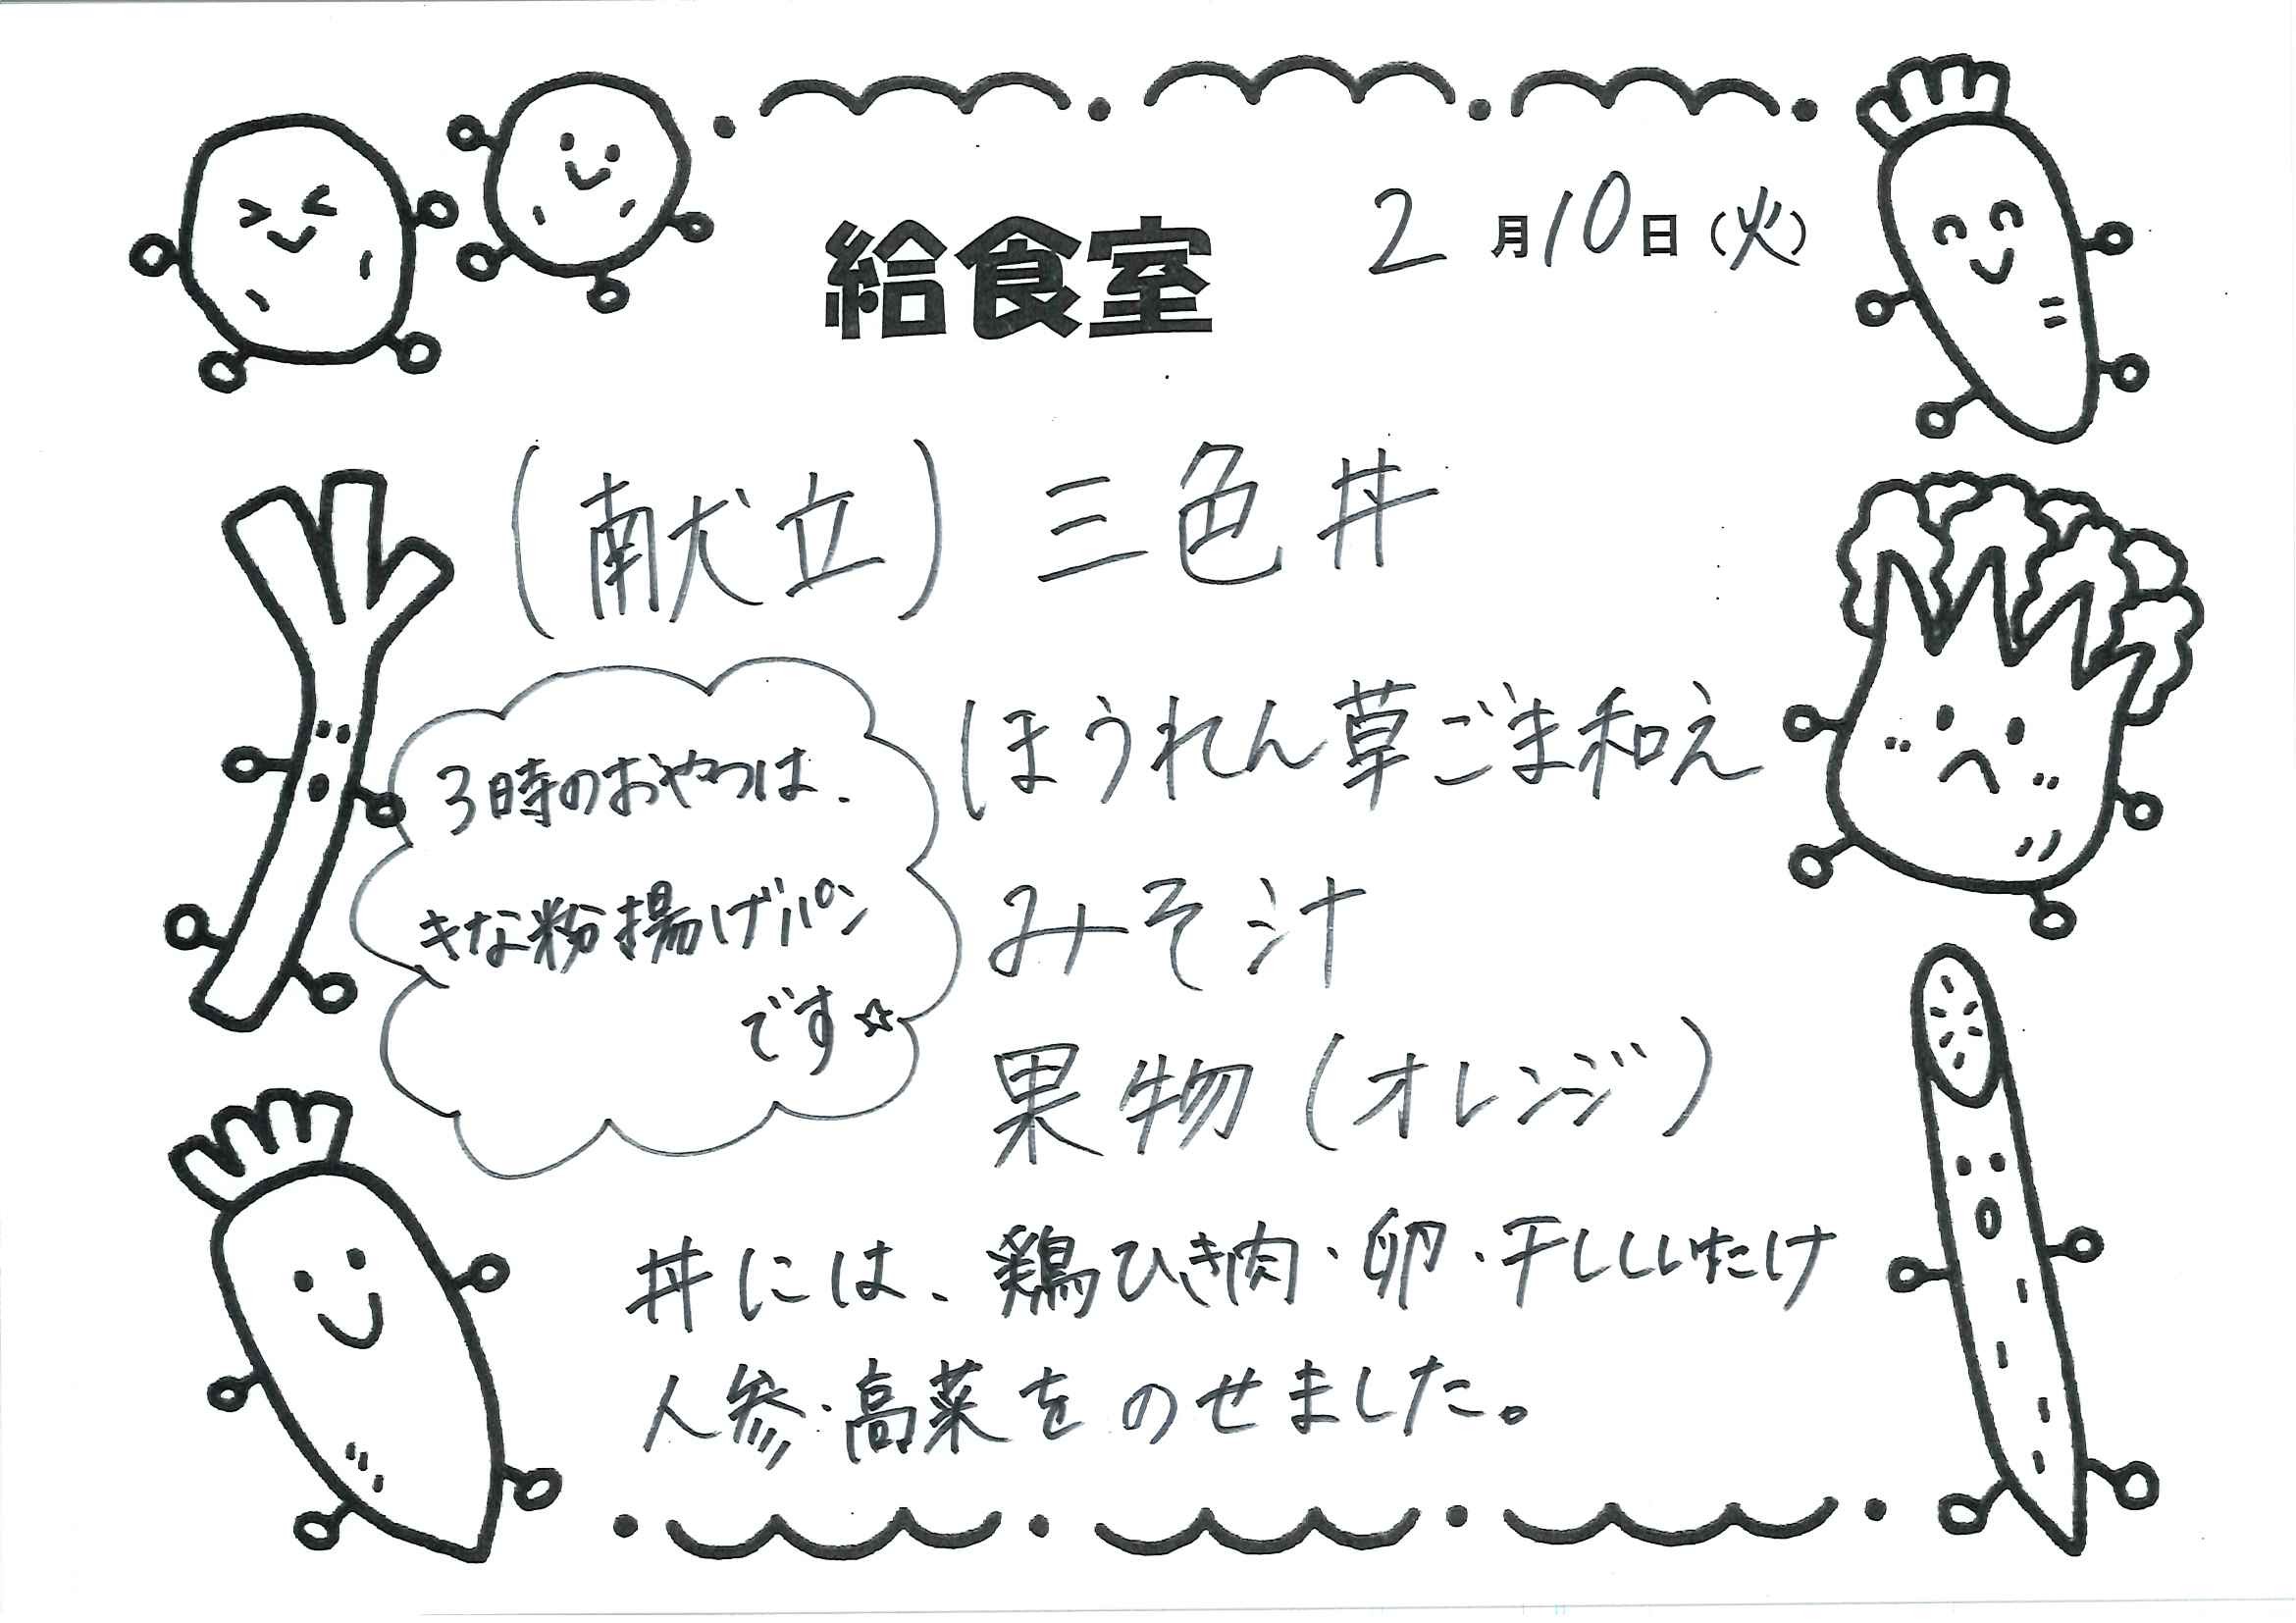 給食室
2月10日(火)
(献立)三色丼
ほうれん草ごま和え
みそ汁
果物(オレンジ)
3時のおやつは、
きな粉揚げパン
です☆
丼には、鶏ひき肉・卵・干ししいたけ
人参・高菜をのせました。